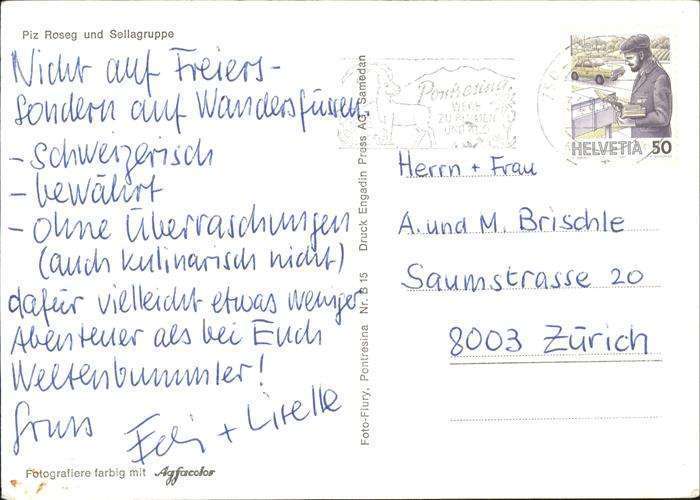 Piz Roseg und Sellagruppe
Nicht auf Freiers-
sondern auf Wandersfüssen
- schweizerisch
- bewährt
- ohne Überraschungen
(auch kulinarisch nicht)
dafür vielleicht etwas weniger
Abenteuer als bei Euch
Weltenbummler!
Gruss
+ Liselle
Fotografiere farbig mit Agfacolor
Foto-Flury, Pontresina Nr. S 15 Druck Engadin Press AG, Samedan
Pontresina
WEGE
ZU
UND
HELVETIA 50
Herrn + Frau
A. und M. Brischle
Saumstrasse 20
8003 Zürich